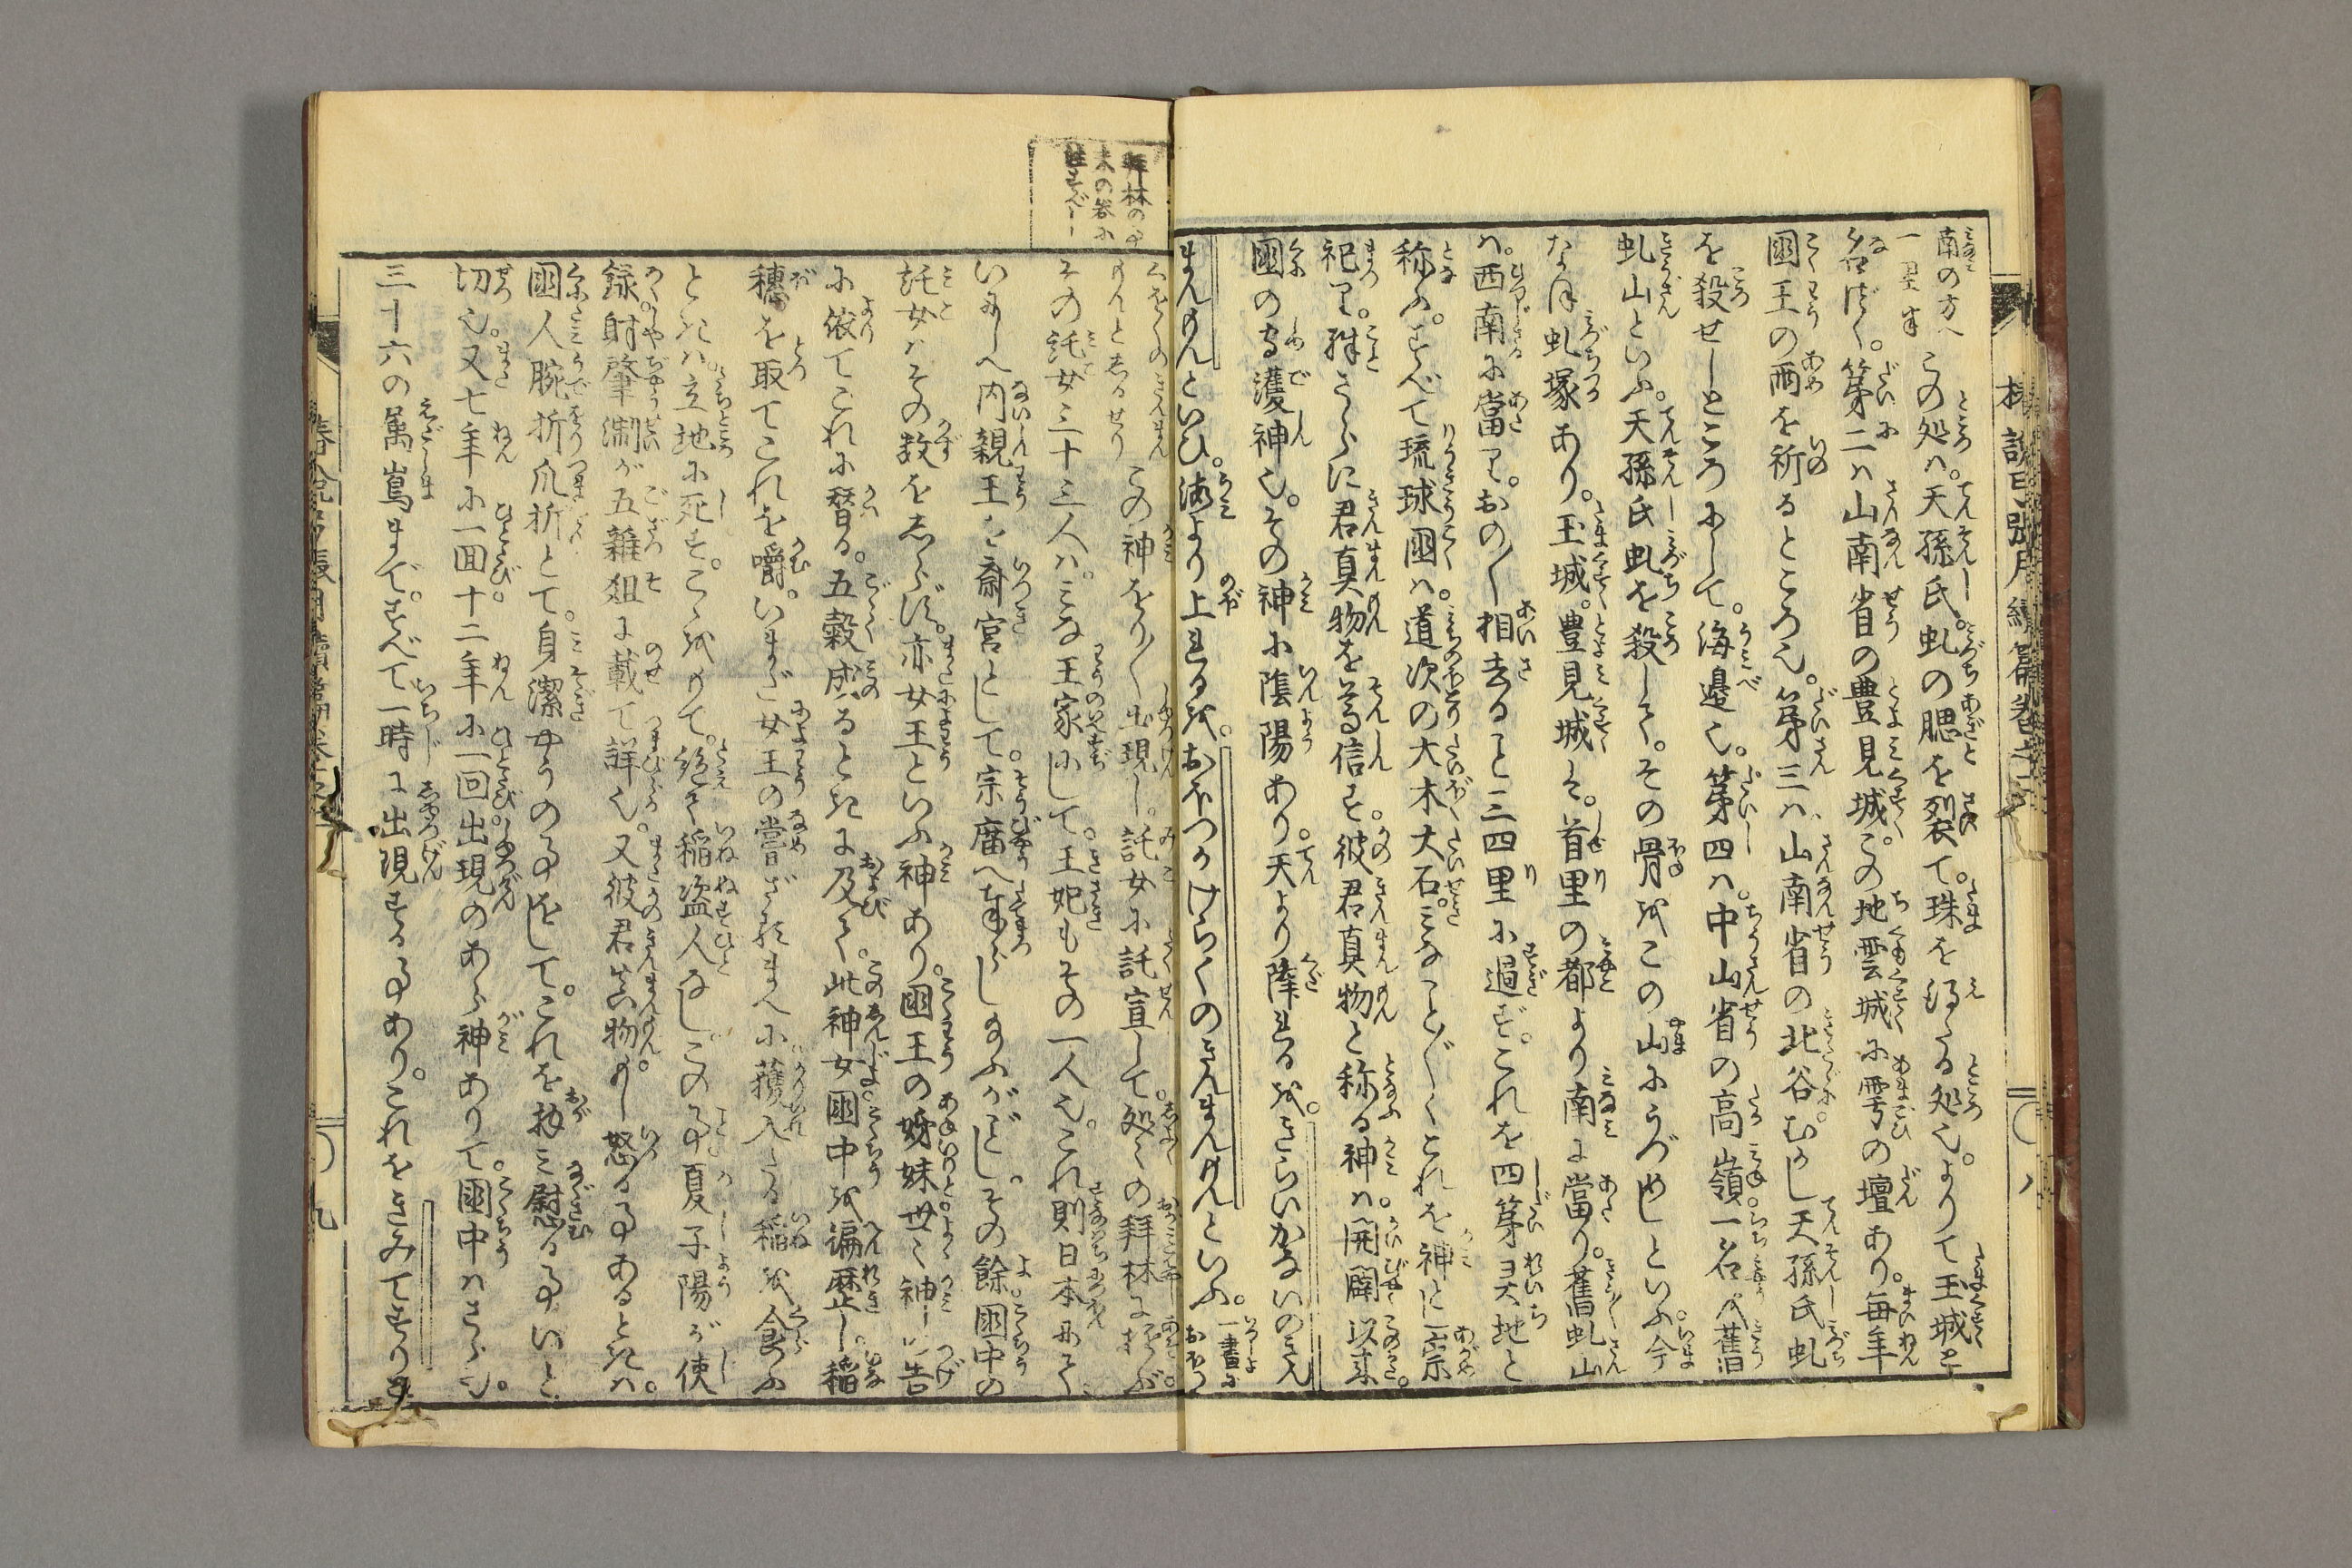 椿説弓張月續篇巻之
南の方へ
一里半
この処は。天孫氏。虬の腮を裂て。珠を得たる処也。よりて玉城と
名づく。第二は山南省の豊見城。この地雲城に雩の壇あり。毎年
國王の雨を祈るところ也。第三は、山南省の北谷。むかし天孫氏虬
を殺せしところにして。海邉也。第四は。中山省の高嶺一名は舊
虬山といふ。天孫氏虬を殺して。その骨をこの山にうづめしといふ。今
なほ虬塚あり。玉城。豊見城は。首里の都より南に當り。舊虬山
は。西南に當れり。おの〳〵相去ること三四里に過ず。これを四第灵地と
称ふ。すべて琉球國は。道次の大木大石。みなこと〴〵くこれを神と崇
祀れり。殊さらに君真物を尊信す。彼君真物と称る神は。開闢以来
國の守護神也。その神に陰陽あり。天より降れるを。きらいかないのきん
まんもんといひ。海より上れるを。おほつかけらくのきんまんもんといふ。一書に
おほつ
くをくのきんまん
もんとあるせり
この神をり〳〵出現し。託女に託宣して。処々の拜林に遊ぶ
その託女三十三人は。みな王家にして。王妃もその一人也。これ則日本にて
いにしへ内親王を斎宮として。宗廟へ奉らし給ふがごとし。その餘國中の
託女はその数をしらず。亦女王といふ神あり。國王の姉妹世々神に告
に依てこれに替る。五穀成るときに及て。此神女國中を徧歴し。稲
穂を取てこれを嚼。いまだ女王の嘗ざるまへに穫入たる稲を食ふ
ときは。立地に死す。こゝをもて。絶て稲盗人なし。この事夏子陽が使
録。射肇淛が五雑俎に載て詳也。又彼君真物もし怒る事あるときは。
國人腕折爪折とて。身潔やうの事をして。これを拜み慰る事いと
切也。又七年に一回。十二年に一回出現のあら神ありて。國中はさら也。
三十六の属嶌まで。すべて一時に出現する事あり。これをきみてすりと
拜林の事
末の巻に
註すべし